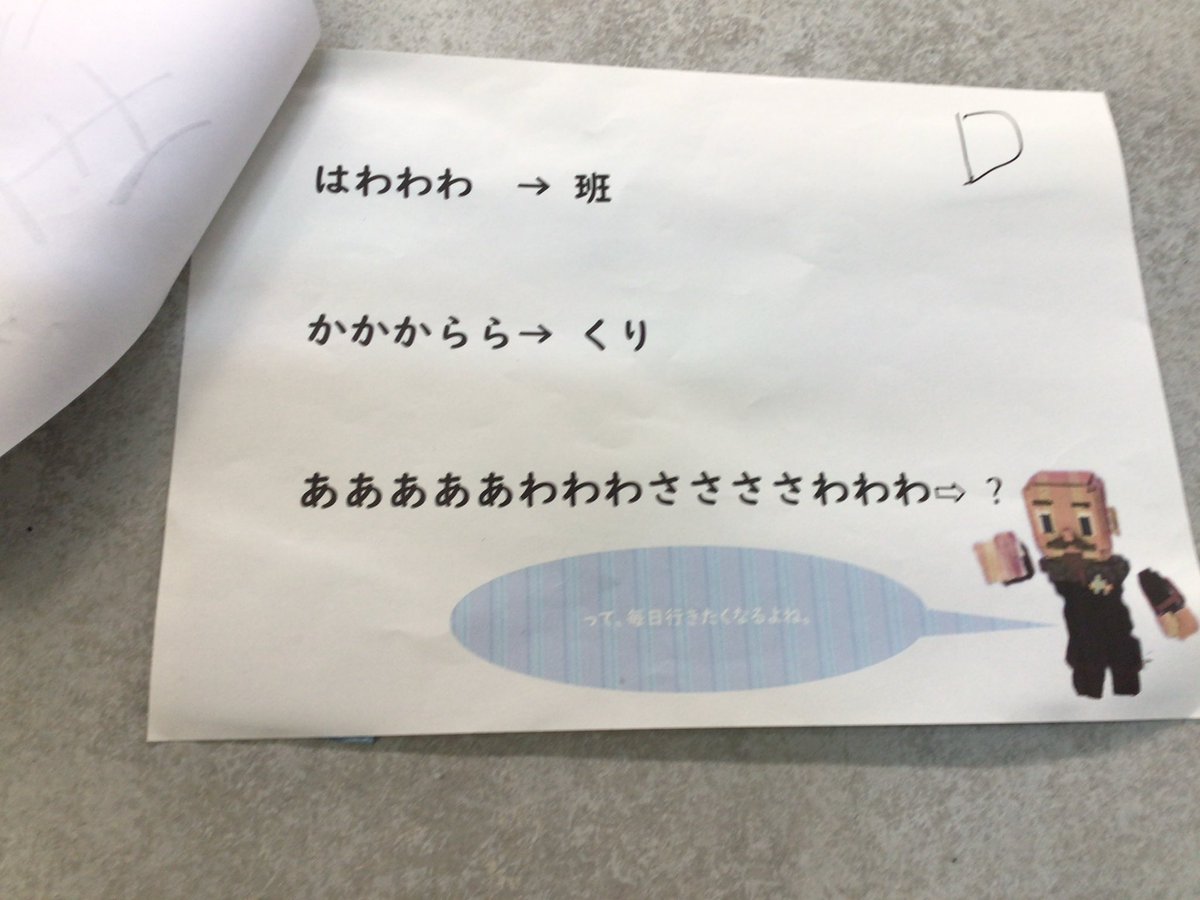 D
はわわわ → 班
かかからら→ くり
あああああわわわささささわわわ⇨ ?
って、毎日行きたくなるよね。